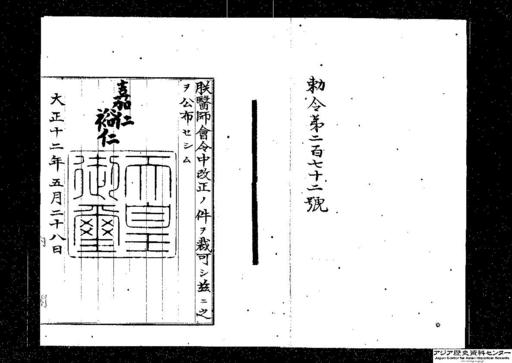 勅令第二百七十二號
朕醫師會令中改正ノ件ヲ裁可シ茲ニ之
ヲ公布セシム
嘉仁
裕仁
天皇御璽
大正十二年五月二十八日
アジア歴史資料センター
Japan Center for Asian Historical Records